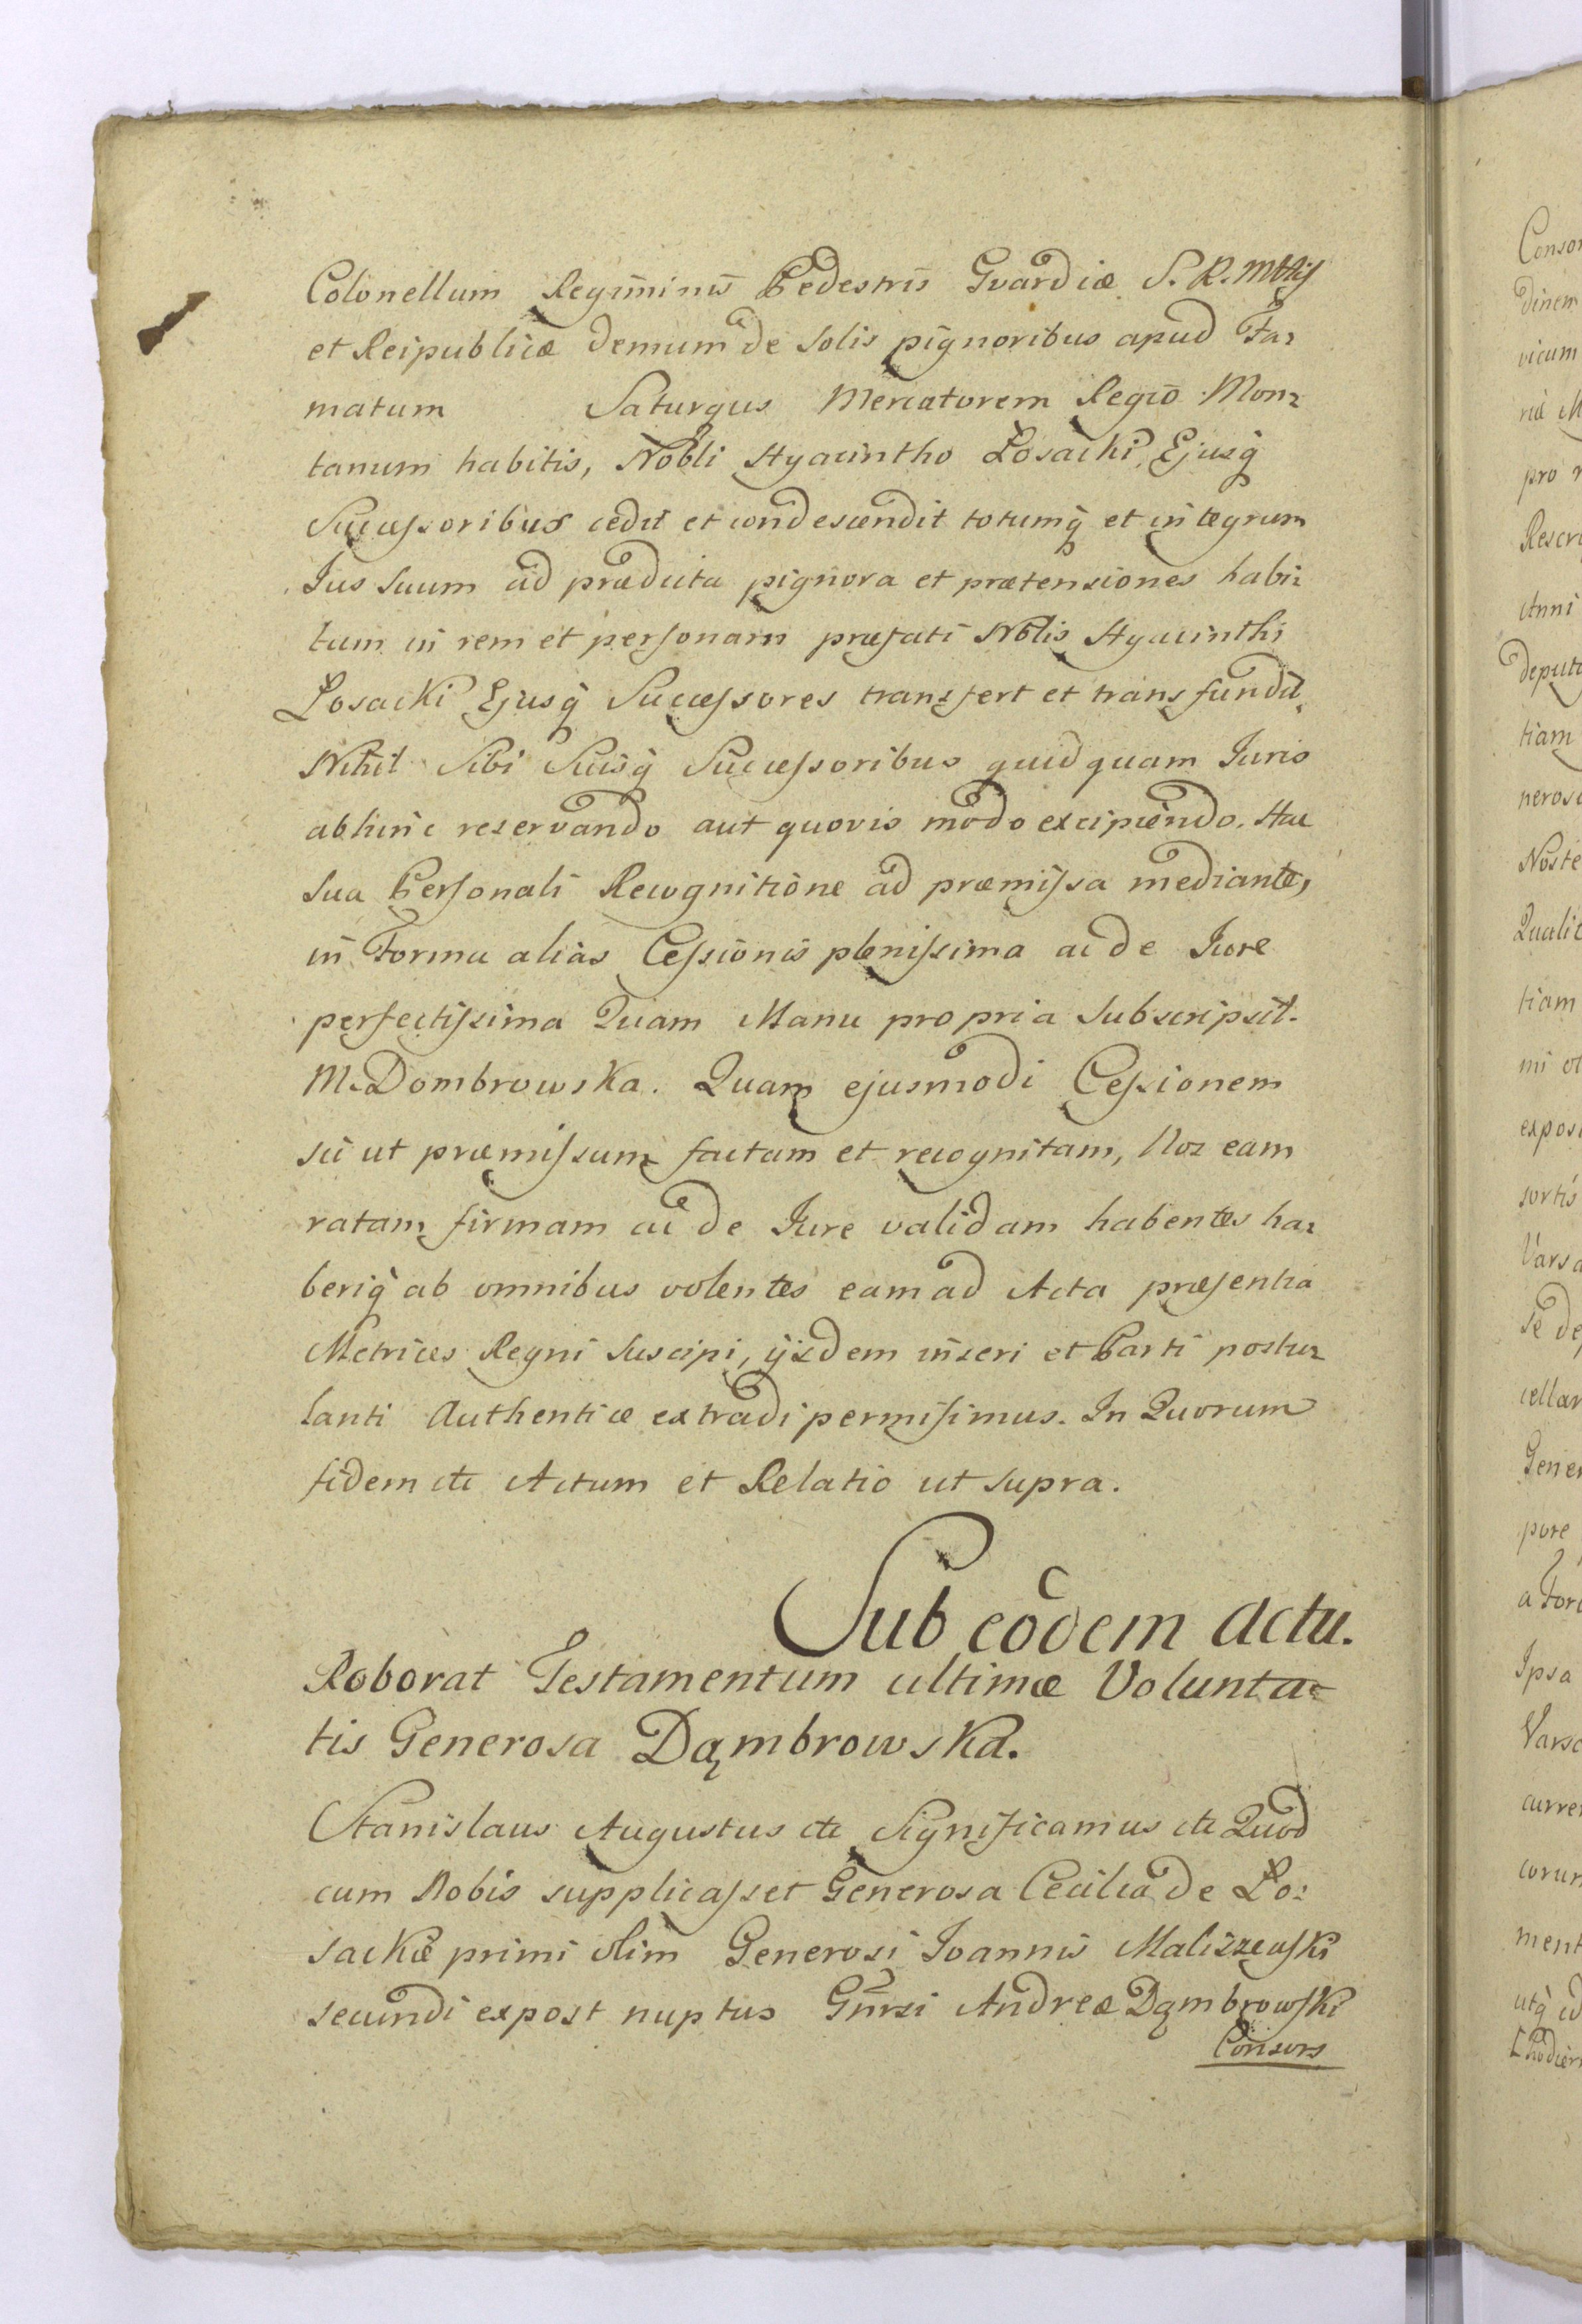 Colonellum Regiminis Pedestris Gvardiæ S. R. Mttis
et Reipublicæ demum de solis pignoribus apud Fa-
matum Saturgus Mercatorem Regio Mon-
tanum habitis, Nobli Hyacintho Łosacki, Ejusq̃
Successoribus cedit et condescendit totumq̃ et integrum
Jus suum ad prædicta pignora et prætensiones habi-
tum in rem et personam præfati Noblis Hyacinthi
Łosacki Ejusq̃ Successores transfert et transfundit,
Nihil Sibi Suisq̃ Successoribus quidquam Juris
abhinc reservando aut quovis modo excipiendo. Hac
sua Personali Recognitione ad præmissa mediante,
in Forma alias Cessionis plenissima ac de Jure
perfectissima Quam Manu propria subscripsit.
M. Dombrowska. Quam ejusmodi Cessionem
sic ut præmissum factam et recognitam, Nos eam
ratam firmam ac de Jure validam habentes ha-
beriq̃ ab omnibus volentes eam ad Acta præsentia
Metrices Regni suscipi, ijsdem inseri et Parti postu-
lanti Authenticæ extradi permisimus. In Quorum
fidem etc Actum et Relatio ut supra.
Sub eodem actu.
Roborat Testamentum ultimæ Volunta-
tis Generosa Dąmbrowska.
Stanislaus Augustus etc Significamus etc Quod
cum Nobis supplicasset Generosa Cecilia de Ło-
sackie primi olim Generosi Joannis Maliszewski
secundi expost nuptus Gnrsi Andreæ Dąmbrowski
Consors
Conso
dinem
vicum
pro
Rescr
Anni
deputa
tiam
neros
Noste
Qualit
tiam
mi
expos
sortis
Vars
se de
cellar
Gener
pore
a For
Ipsa
Vars
curre
corum
ment
utq̃